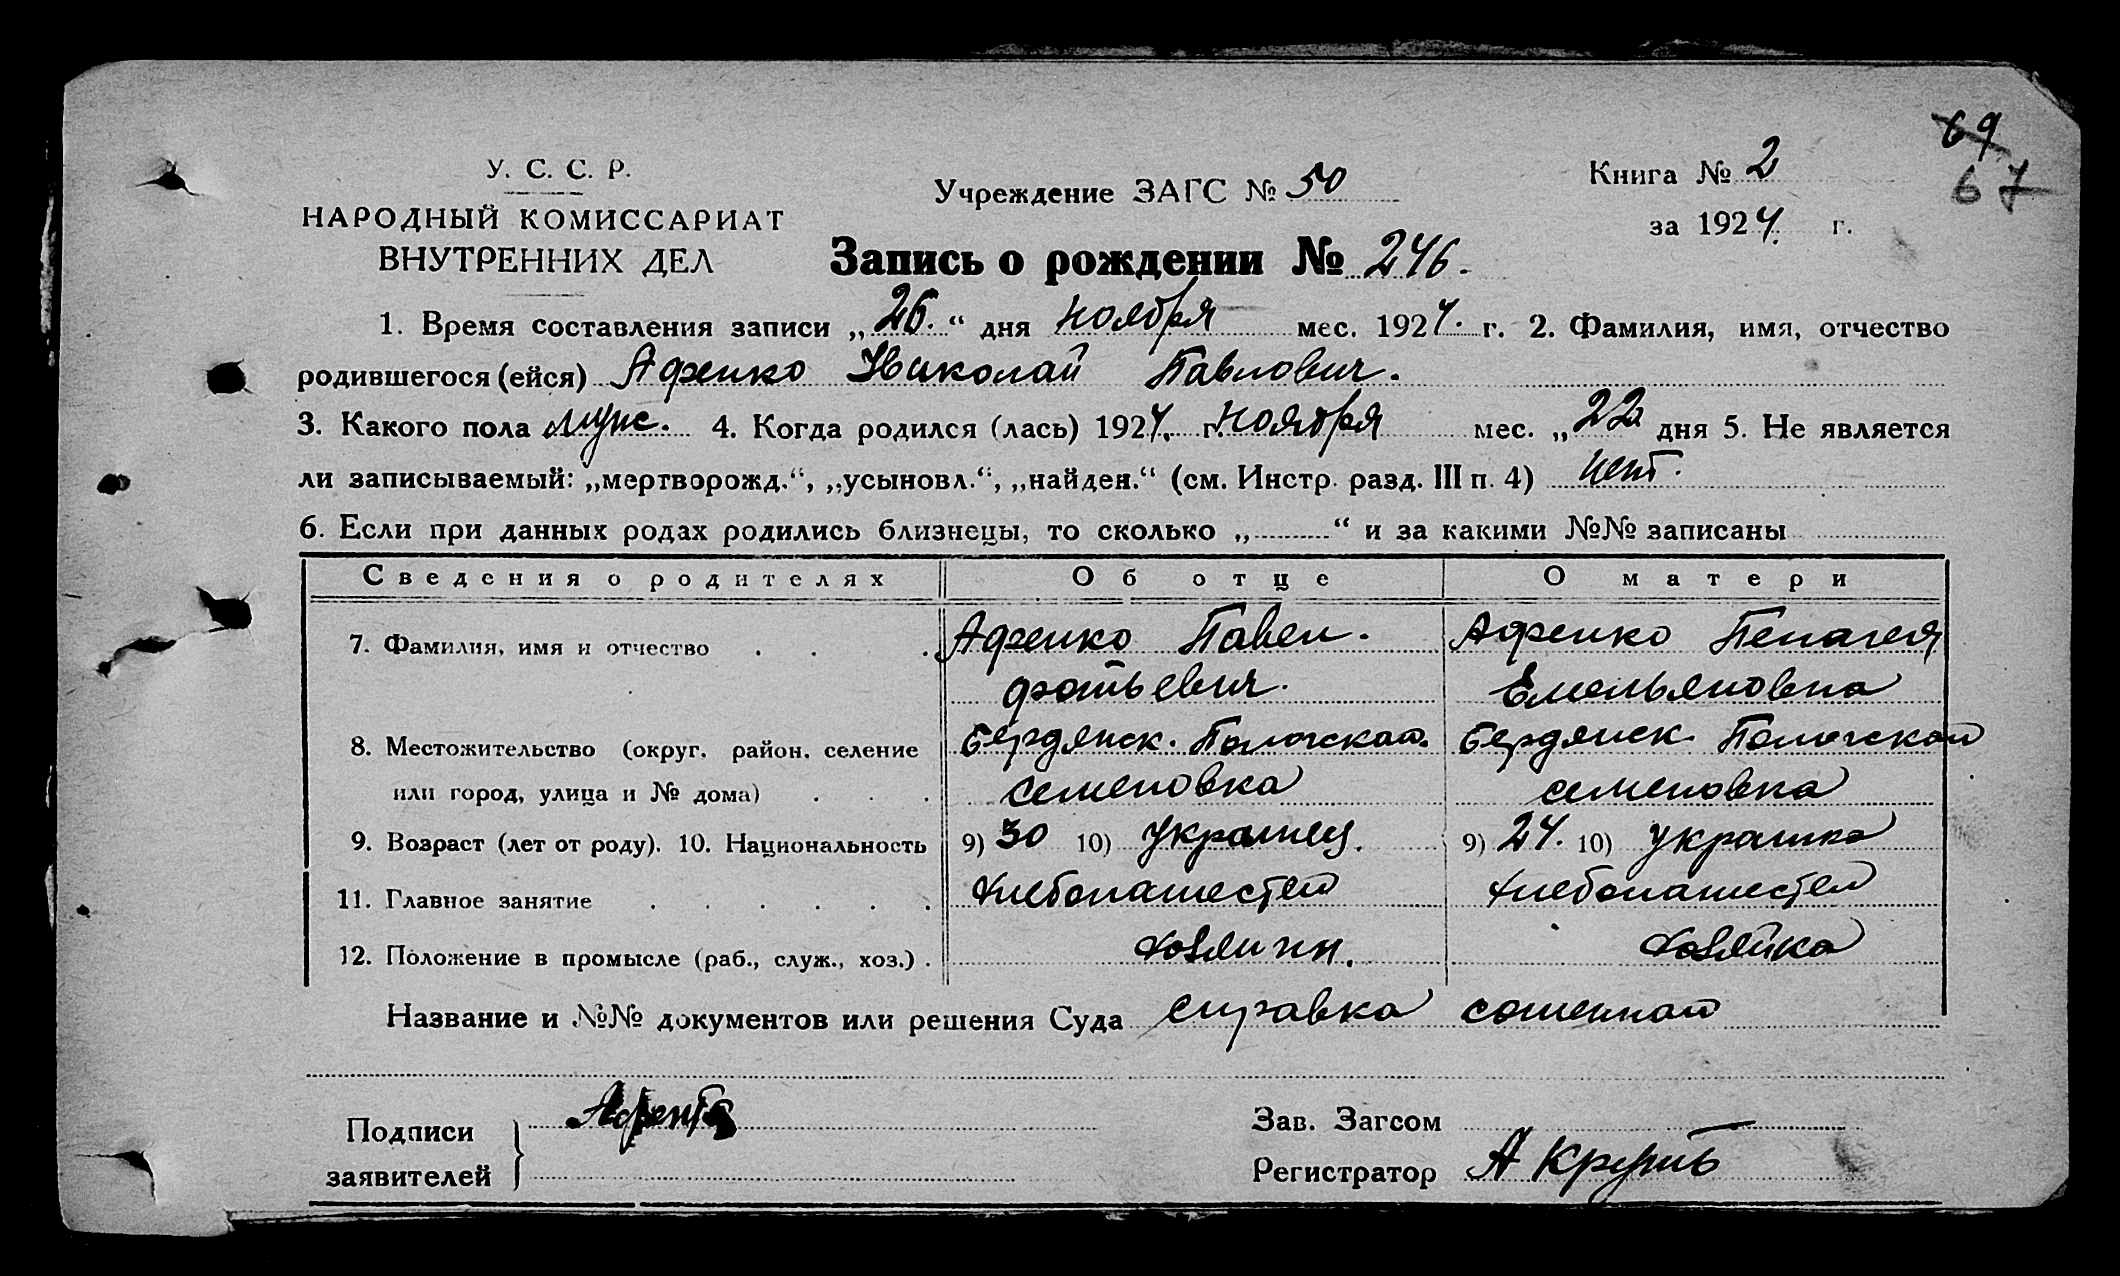 69
67
У. С. С. Р.
НАРОДНЫЙ КОМИССАРИАТ
ВНУТРЕННИХ ДЕЛ
Учреждение ЗАГС № 50
Книга № 2
за 1924 г.
Запись о рождении № 246.
1. Время составления записи „26.“ дня ноября мес. 1924. г. 2. Фамилия, имя, отчество
родившегося (ейся) Афенко Николай Павлович.
3. Какого пола муж. 4. Когда родился (лась) 1924. г. ноября мес. „22 дня 5. Не является
ли записываемый: „мертворожд.“, „усыновл.“, „найден.“ (см. Инстр. разд. III п. 4) нет.
6. Если при данных родах родились близнецы, то сколько „ “ и за какими №№ записаны
Сведения о родителях Об отце О матери
7. Фамилия, имя и отчество Афенко Павел. Афенко Пелагея
фотьевич. Емельяновна
8. Местожительство (округ, район, селение Бердянск. Пологской. Бердянск. Пологской
или город, улица и № дома) семеновка семеновка
9. Возраст (лет от роду). 10. Национальность 9) 30 10) украинец. 9) 24. 10) украинка
11. Главное занятие хлебопашеством хлебопашеством
12. Положение в промысле (раб., служ., хоз.) хозяин. хозяйка
Название и №№ документов или решения Суда справка
Подписи
заявителей
Зав. Загсом
Регистратор А Круть